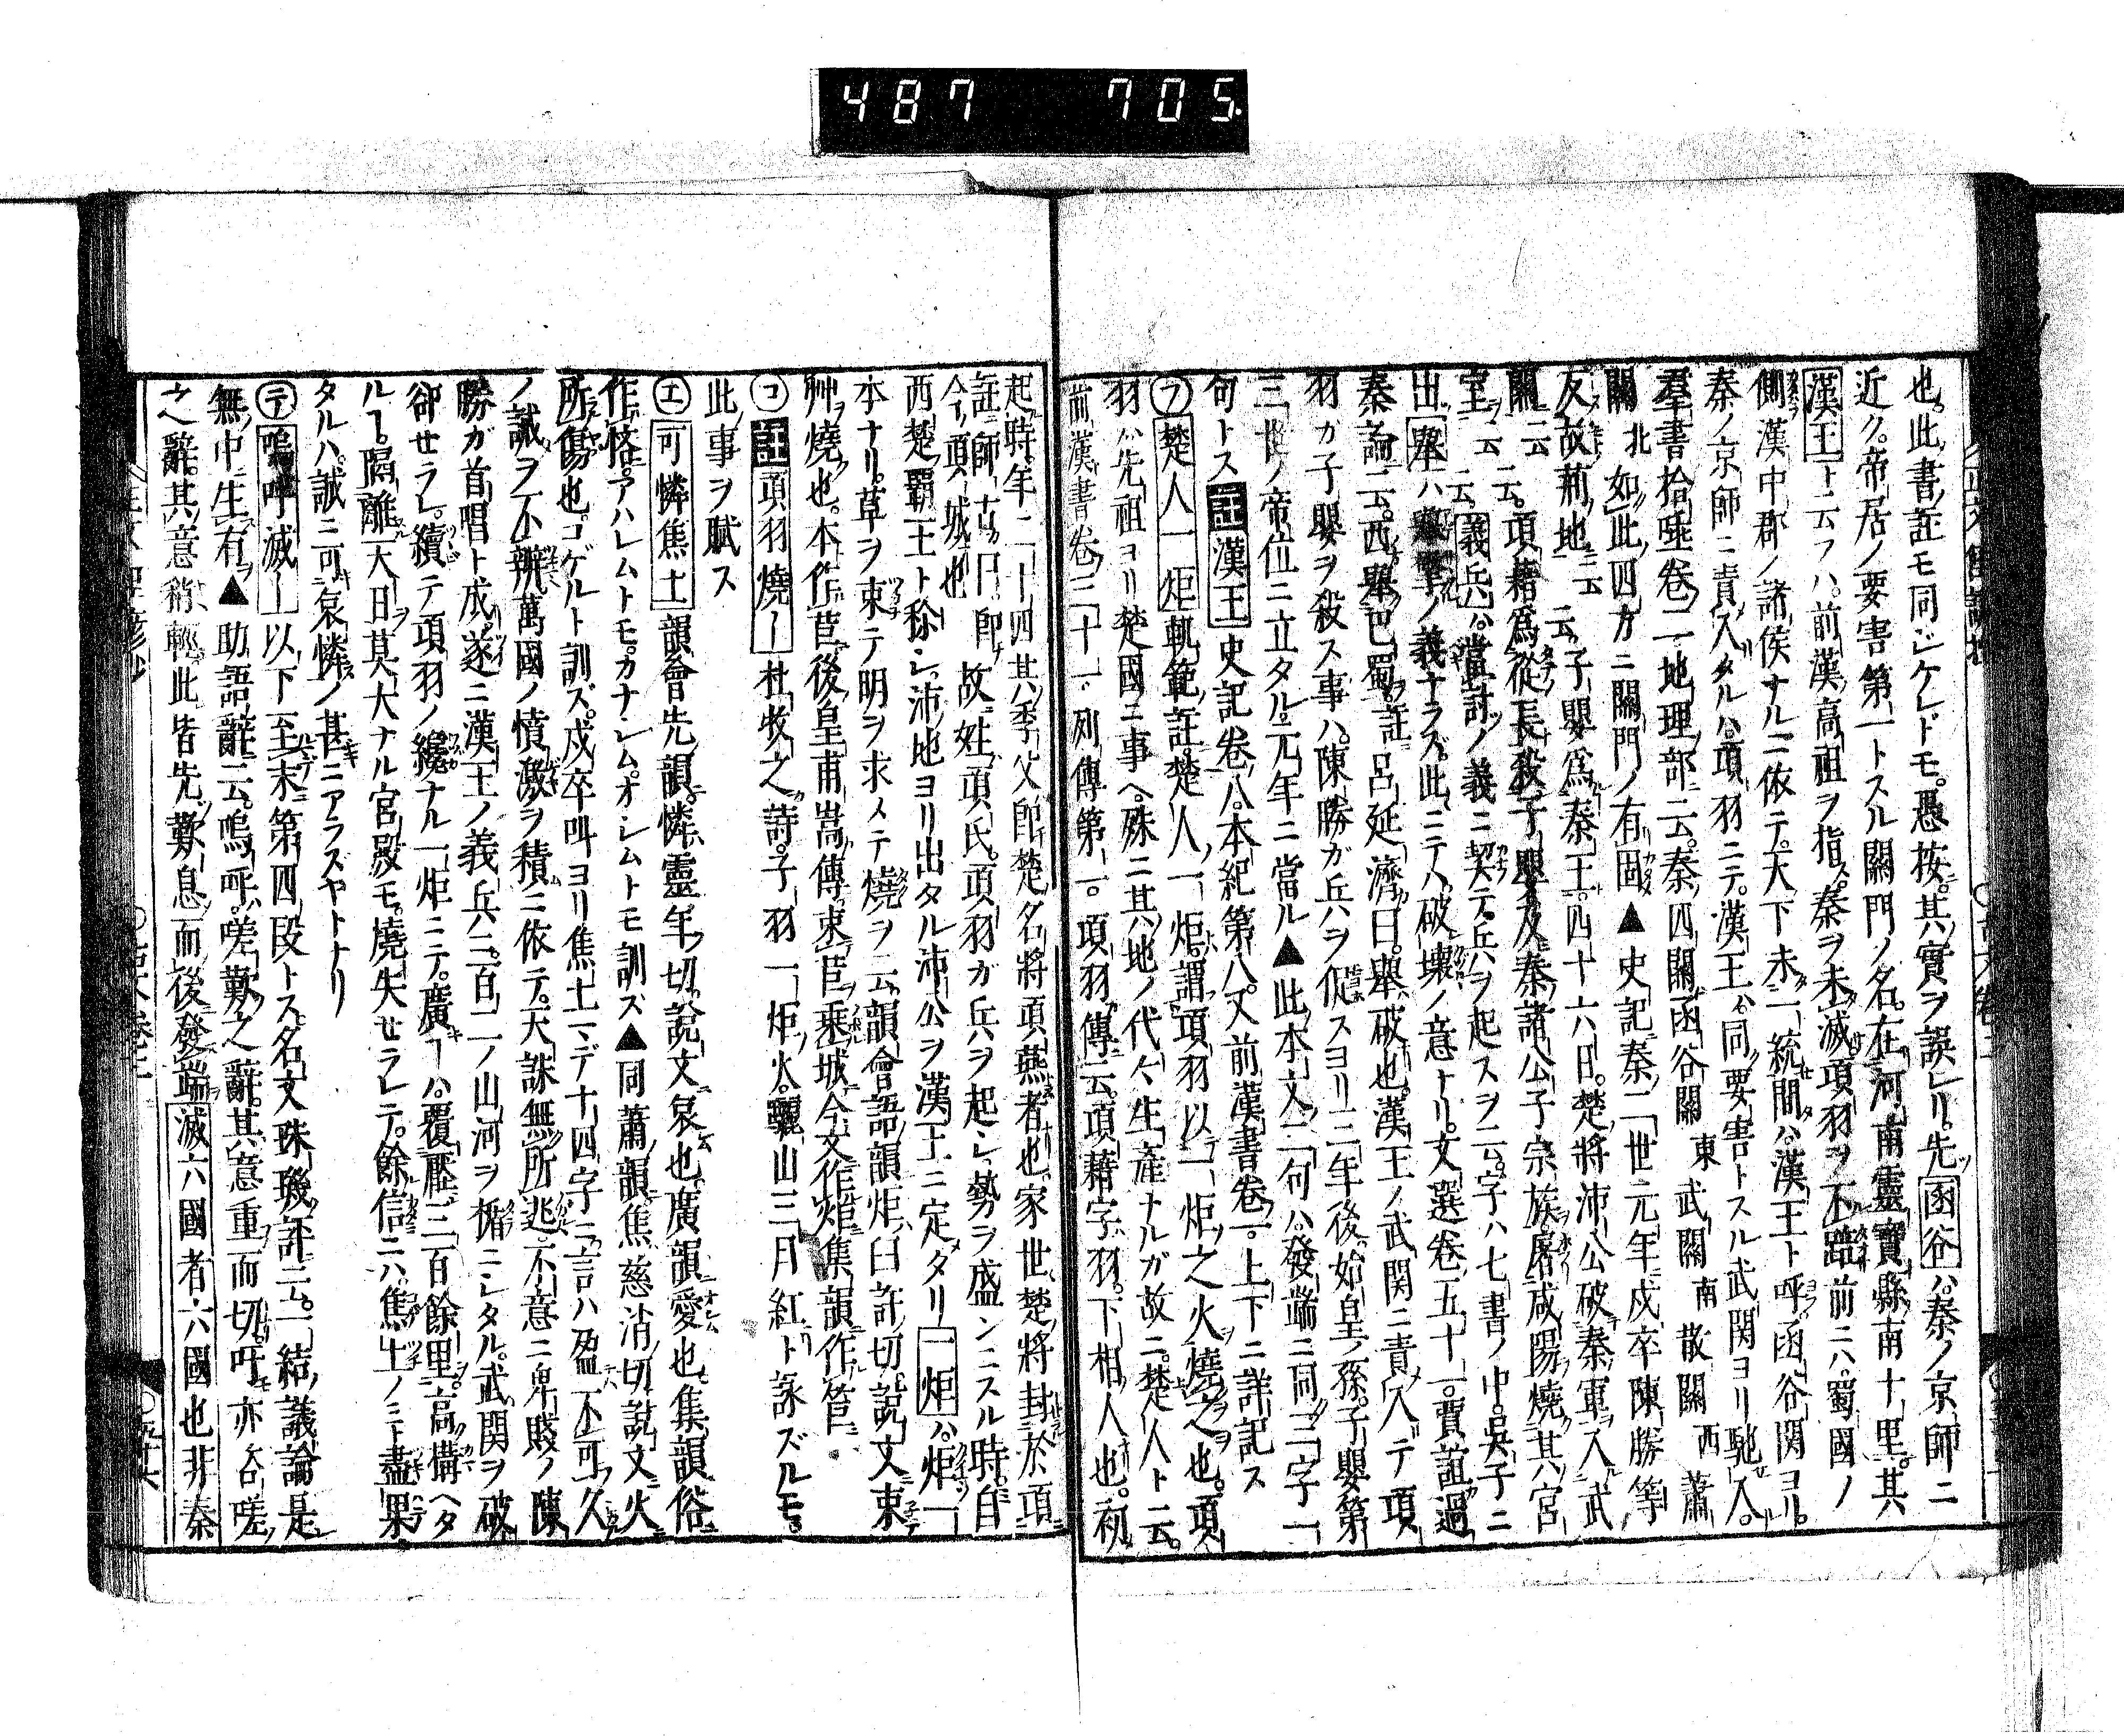 487 705
也此書註モ同ジケレドモ愚按其實ヲ誤レリ先函谷ハ秦ノ京師ニ
近ク帝居ノ要害第一トスル關門ノ名在河南靈寶縣南十里其
漢王ト云フハ前漢高祖ヲ指ス秦ヲ未滅項羽ヲ不踣前ニハ蜀國ノ
側漢中郡ノ諸侯ナルニ依テ天下未一統間ハ漢王ト呼函谷関ヨリ
秦ノ京師ニ責入タルハ項羽ニテ漢王ハ同要害トスル武関ヨリ馳入
羣書拾唾卷二地理部云秦四關函谷關東武關南散關西蕭
關北如此四方ニ關門ノ有固▲史記秦二世元年戍卒陳勝等
反故荊地云云子嬰為秦王四十六日楚將沛公破秦軍入武
關云云項籍為從長殺子嬰及秦諸公子宗族屠咸陽燒其宮
室云云義兵ハ黨討ノ義ニ契テ兵ヲ起スヲ云字ハ七書ノ中吳子ニ
出舉ハ ノ義ナラズ此ニテハ破壞ノ意トリ文選卷五十一賈誼過
秦論云西舉巴蜀註呂延濟曰舉破也漢王ノ武関ニ責入テ項
羽カ子嬰ヲ殺ス事ハ陳勝ガ兵ヲ促スヨリ三年後始皇ノ孫子嬰第
三世ノ帝位ニ立タル元年ニ當ル▲此本文二句ハ發端三同三字一
句トス註漢王史記卷八本紀第八又前漢書卷一上下ニ詳記ス
フ楚人一炬軌範註楚人一炬謂項羽以一炬之火燒之也項
羽ハ先祖ヨリ楚國ニ事ヘ殊ニ其地ノ代々生產ナルガ故ニ楚人ト云
前漢書卷三十一列傳第一項羽傳云項藉字羽下相人也初
起時年二十四其季父即楚名將項燕者也家世楚將封於項
註師古曰即今項城也故姓項氏項羽ガ兵ヲ起シ勢ヲ盛ンニスル時自
西楚覇王ト称シ沛地ヨリ出タル沛公ヲ漢王ニ定メタリ一炬ハ炬一
本ナリ草ヲ束テ明ヲ求メテ燒ヲ云韻會語韻炬臼許切說文束
艸燒也本作苣後皇甫嵩傳束苣乗城今文作炬集韻作筥
コ註項羽燒ー杜牧之詩子羽一炬火驪山三月紅ト詠ズルモ
此事ヲ賦ス
エ可憐焦土韻會先韻憐靈年切說文哀也廣韻愛也集韻俗
作怜アハレムトモカナシムオシムトモ訓ズ▲同蕭韻焦慈消切說文火
所傷也コゲルト訓ズ戍卒叫ヨリ焦土マデ十四字ニ言ハ盈不可久
ノ誡ヲ不辨萬國ノ憤激ヲ積ニ依テ天誅無所逃不意ニ卑賤ノ陳
勝ガ首唱ト成遂ニ漢王ノ義兵ニ百二ノ山河ヲ楯ニシタル武関ヲ破
卻セラレ續テ項羽ノ纔ナル一炬ニテ廣ーハ覆壓三百餘里高構ヘタ
ルヿ隔離天日其大ナル宮殿モ燒失セラレテ餘信ニハ焦土ノミト盡果
タルハ誠ニ可哀憐ノ甚ニアラスヤトナリ
テ嗚呼滅ー以下至末第四段トス名文珠璣評云一結議論是
無中生有▲助語辭云嗚呼嗟歎之辭其意重而切吁亦咨嗟
之辭其意稍輕此皆先歎息而後發端滅六國者六國也非秦